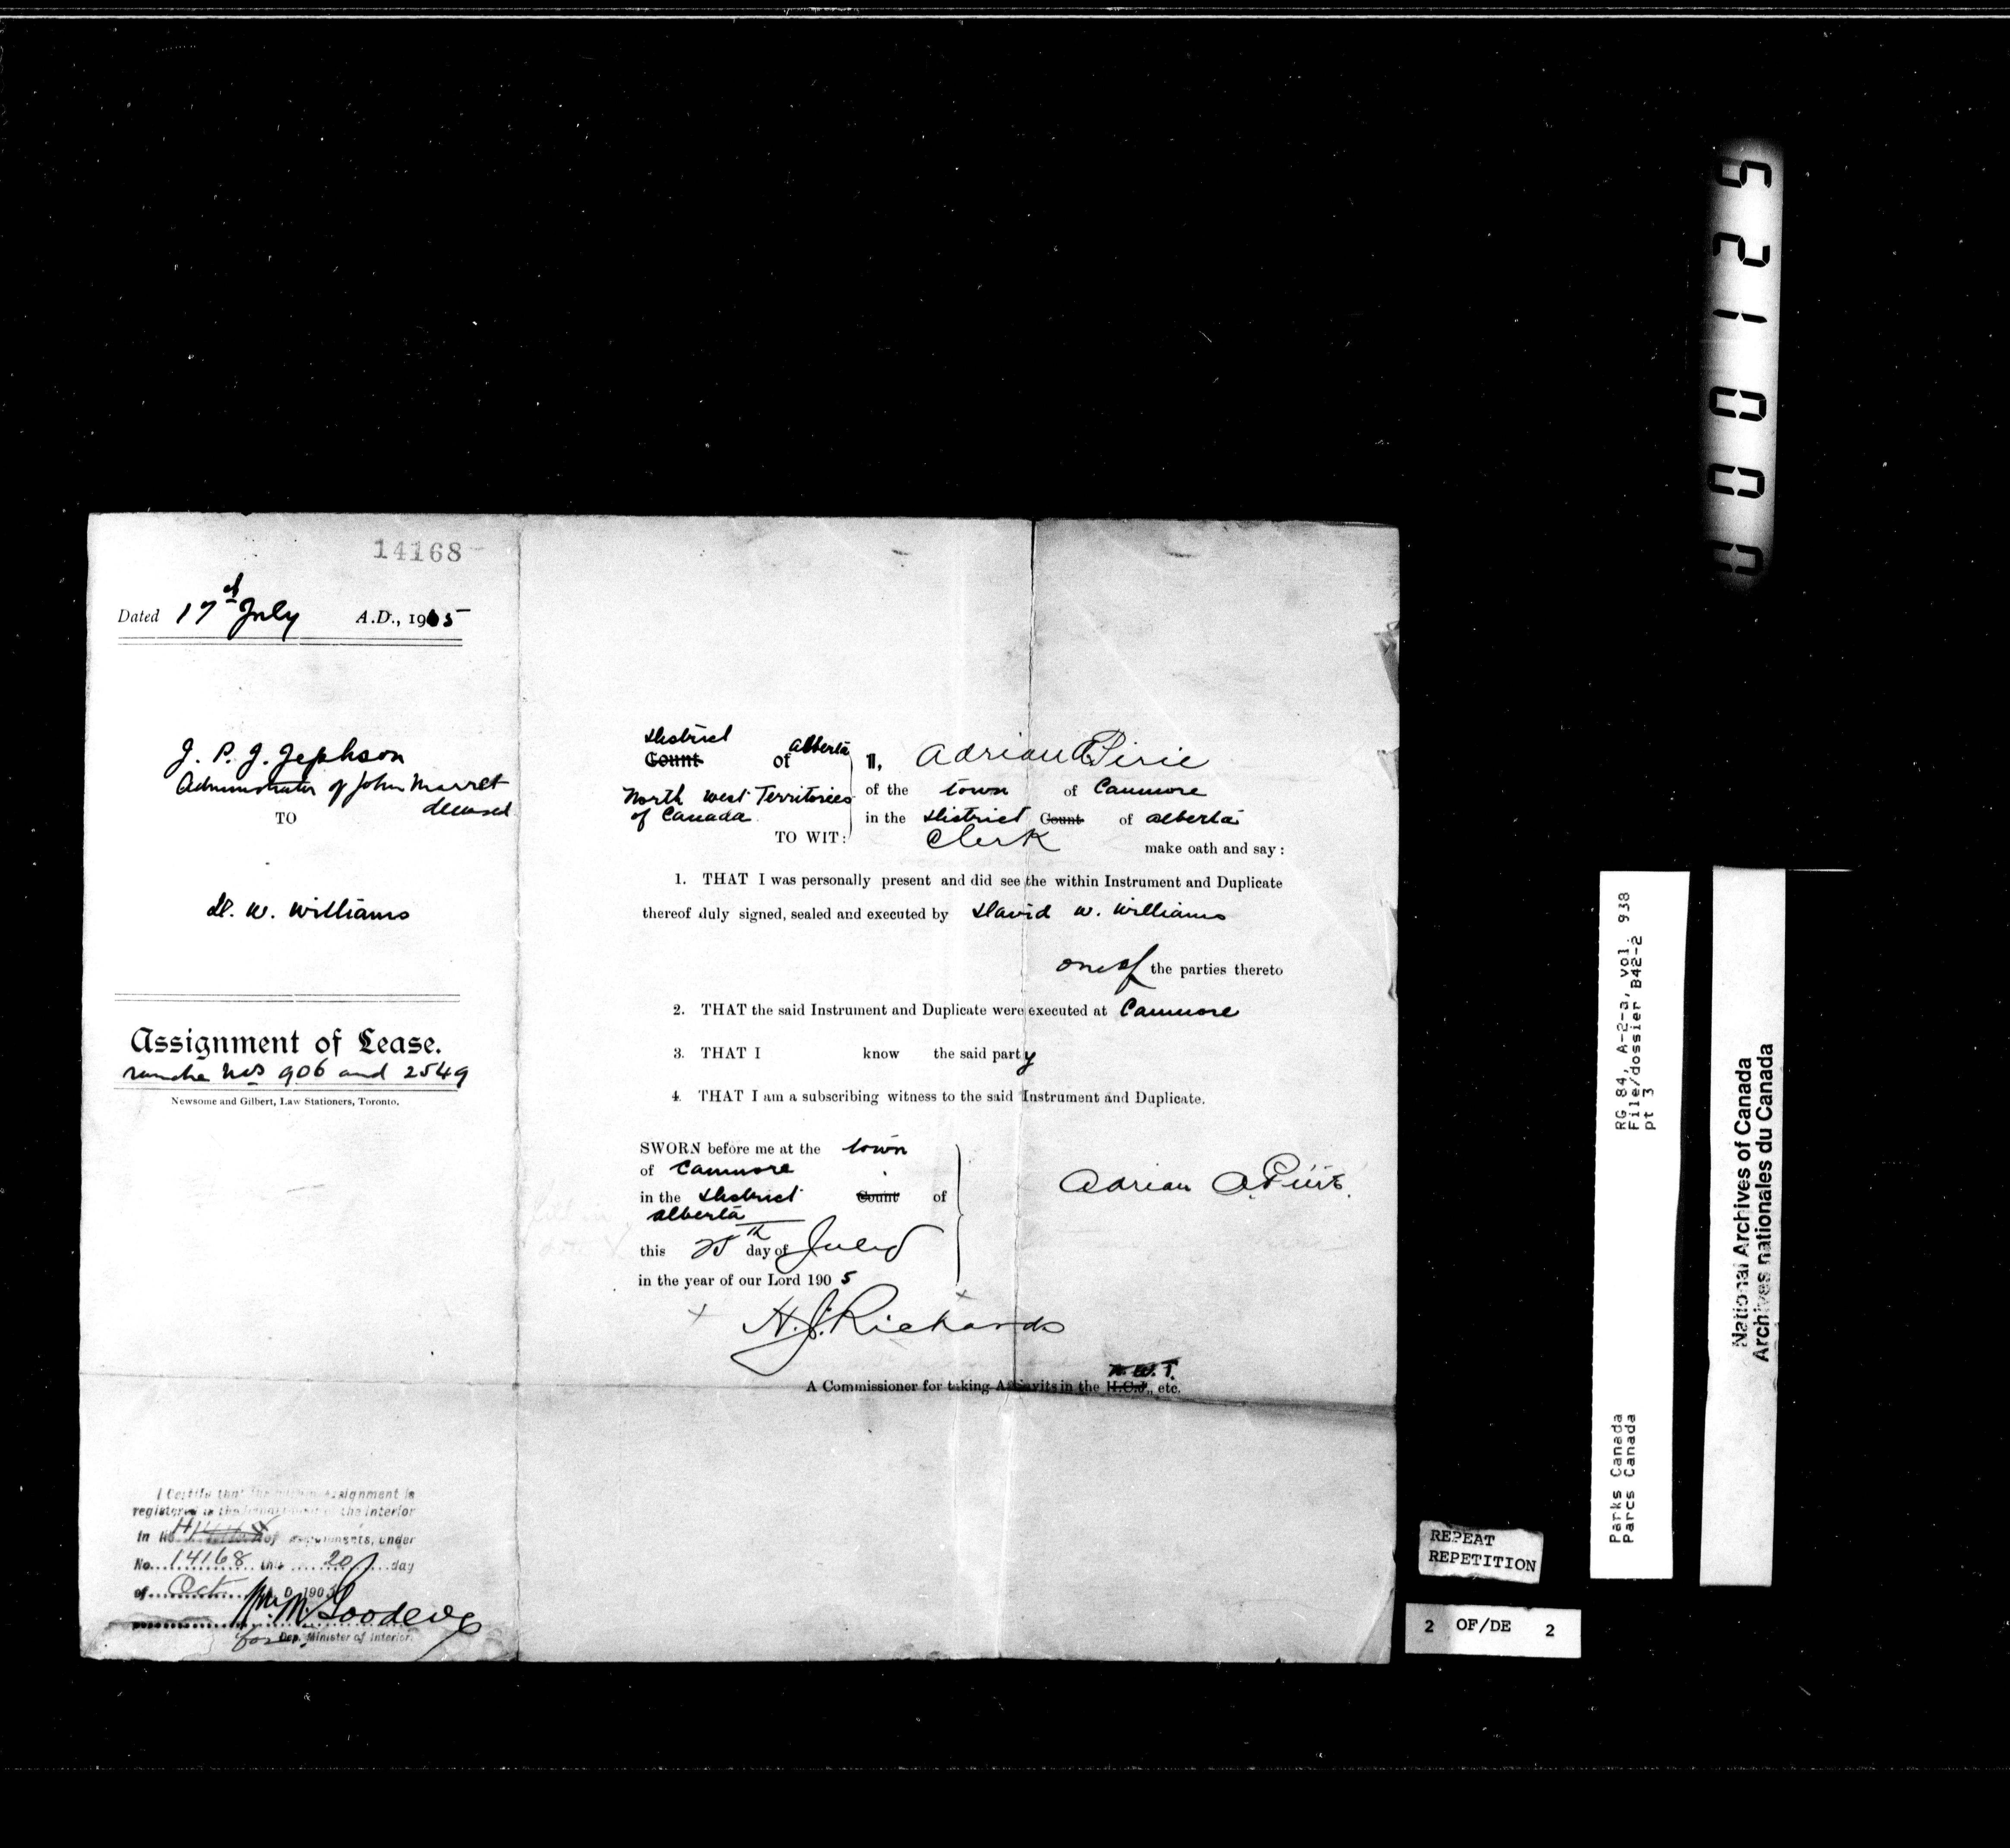 14168
Dated 17th July A.D., 1905
J. P. J. Jephson
Administrator of John Marret
deceased
TO
D. W. Williams
Assignment of Lease.
ranche Nos 906 and 2549
Newsome and Gilbert, Law Stationers, Toronto.
I Certify that the within Assignment is
registered in the Department of the Interior
in of assignments, under
No. 14168 this 20 day
of Oct A.D. 190
Goodeve
for Dep. Minister of Interior.
District
Count of Alberta
North West Territories
of Canada
TO WIT:
I, Adrian A Pirie
of the town of Canmore
in the District Count of Alberta
Clerk make oath and say:
1. THAT I was personally present and did see the within Instrument and Duplicate
thereof duly signed, sealed and executed by David W. Williams
one of the parties thereto
2. THAT the said Instrument and Duplicate were executed at Canmore
3. THAT I know the said party
4. THAT I am a subscribing witness to the said Instrument and Duplicate.
SWORN before me at the town
of Canmore
in the District Count of
Alberta
this 25th day of July
in the year of our Lord 1905
Adrian A. Pirie
H. J. Richards
N. W. T.
A Commissioner for taking Affidavits in the H.C.J., etc.
REPEAT
REPETITION
2 OF/DE 2
RG 84, A-2-a, vol. 938
File/dossier B42-2
pt 3
Parks Canada
Parcs Canada
National Archives of Canada
Archives nationales du Canada
000129